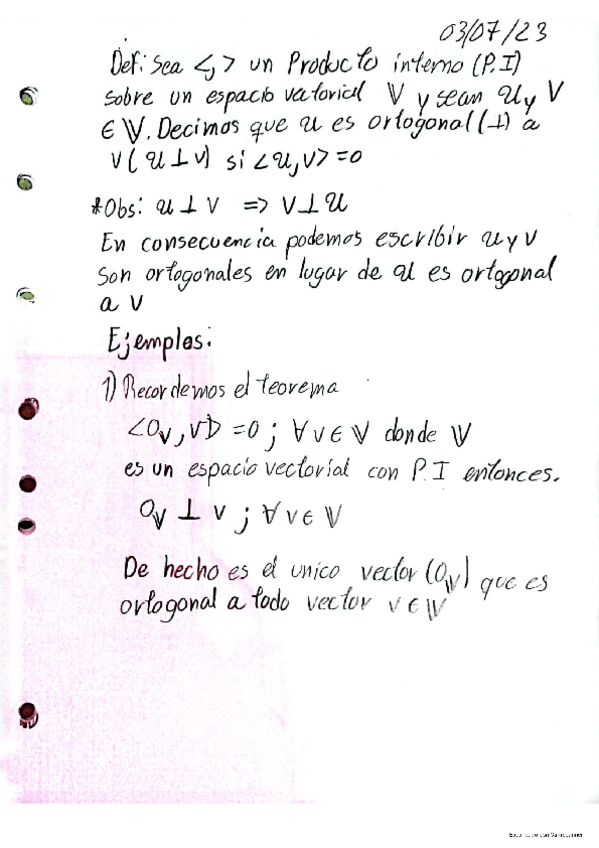 03/07/23
Def: Sea <,> un Producto interno (P.I)
sobre un espacio vectorial 𝕍 y sean u y v
∈ 𝕍. Decimos que u es ortogonal (⊥) a
v (u ⊥ v) si <u,v> = 0
*Obs: u ⊥ v => v ⊥ u
En consecuencia podemos escribir u y v
son ortogonales en lugar de u es ortogonal
a v
Ejemplos:
1) Recordemos el teorema
<0𝕍, v> = 0 ; ∀ v ∈ 𝕍 donde 𝕍
es un espacio vectorial con P.I entonces.
0𝕍 ⊥ v ; ∀ v ∈ 𝕍
De hecho es el unico vector (0𝕍) que es
ortogonal a todo vector v ∈ 𝕍